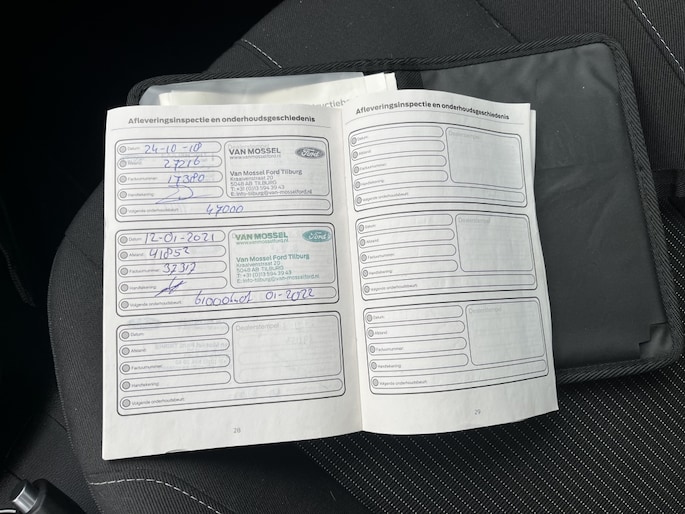 Afleveringsinspectie en onderhoudsgeschiedenis
Datum: 24-10-18
Afstand: 27216
Factuurnummer: 17380
Handtekening:
Volgende onderhoudsbeurt: 47000
VAN MOSSEL
www.vanmosselford.nl
Ford
Van Mossel Ford Tilburg
Kraaivenstraat 20
5048 AB TILBURG
T:+31 (0)13 594 39 43
E: info-tilburg@van-mosselford.nl
Datum: 12-01-2021
Afstand: 41852
Factuurnummer:
Handtekening:
Volgende onderhoudsbeurt: 61000 of 01-2022
VAN MOSSEL
www.vanmosselford.nl
Ford
Van Mossel Ford Tilburg
Kraaivenstraat 20
5048 AB TILBURG
T:+31 (0)13 594 39 43
E: info-tilburg@van-mosselford.nl
Datum:
Afstand:
Factuurnummer:
Handtekening:
Volgende onderhoudsbeurt:
Dealerstempel
28
Afleveringsinspectie en onderhoudsgeschiedenis
Datum:
Afstand:
Factuurnummer:
Handtekening:
Volgende onderhoudsbeurt:
Dealerstempel
Datum:
Afstand:
Factuurnummer:
Handtekening:
Volgende onderhoudsbeurt:
Dealerstempel
Datum:
Afstand:
Factuurnummer:
Handtekening:
Volgende onderhoudsbeurt:
Dealerstempel
29